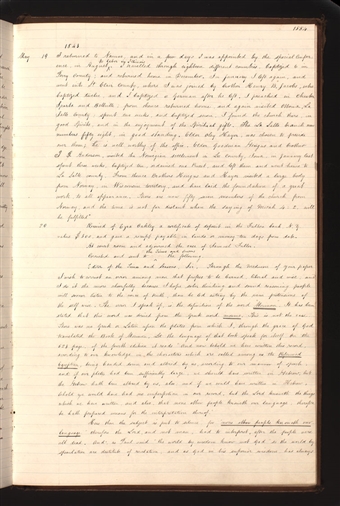 1843
May 19 I returned to Nauvoo, and in a few days I was appointed by the special confer-
ence, in August, to labor in Illinois I travelled through eighteen different counties, baptized 2 in
Perry County; and returned home in December. In January I left again, and
went into St Clair County, where I was joined by brother Harvey
baptized twelve, and I baptized a German, after he left, I preached in
and from thence returned home, and again visited Ottawa, La
Salle County spent two weeks, and baptized seven. I found the church there in
good Spirits, and in the enjoyment of the Spiritual gifts. The La Salle branch now
numbers fifty eight, in good standing, Elder Ole Heyer, was chosen to preside
over them; he is well worthy of the office, Elder Gudmund Haugas and brother
J. R. Anderson, visited the Norwegian settlement in Lee County, Iowa, in January last
spent three weeks, baptized ten, ordained one Priest, and left them and went home to
La Salle County. From thence brothers Haugas and Heyer visited a large body
from Norway, in Wisconsin territory, and have laid the foundation of a great
work to all appearance. There are now fifty seven members of the church from
Norway, and the time is not far distant when the saying of Micah 4: 2, will
be fulfilled"
20 Received of Ezra Oakley a certificate of deposit in the Fulton bank N. Y.
value $ and gave a receipt payable in lands in
At
Corrected and sent to the Times and Seasons the following
"Editor of the Times and Seasons, Sir, Through the medium of your paper,
I wish to correct an error among men that profess to be learned, liberal and wise; and
I do it the more cheerfully, because I hope sober thinking and sound reasoning people
will sooner listen to the voice of truth, than be led astray by the vain pretensions of
the self wise. The error I speak of, is the definition of the word Mormon. It has been
stated that this word was derived from the Greek word mormo. This is not the case.
There was no Greek or Latin upon the plates from which I, through the grace of God
translated the Book of Mormon. Let the language of that book speak for itself. On the
523 page, of the fourth edition, it reads: "And now behold we have written this record,
according to our knowledge in the characters which are called among us the Reformed
Egyptian, being handed down and altered by us, according to our manner of speech;
and if our plates had been sufficiently large, we should have written in Hebrew; but
the Hebrew hath been altered by us, also; and if we could have written in Hebrew,
behold ye would have had no imperfection in our record, but the Lord knoweth the things
which we have written, and also, that none other people knoweth our language; therefore
he hath prepared means for the interpretation thereof."
Here then the subject is put to silence, for none other people knoweth our
language, therefore the Lord, and not man, had to interpret, after the people were
all dead. And as Paul said, the world by wisdom know not God, so the world by
speculation are destitute of revelation, and as God in his superior wisdom, has always